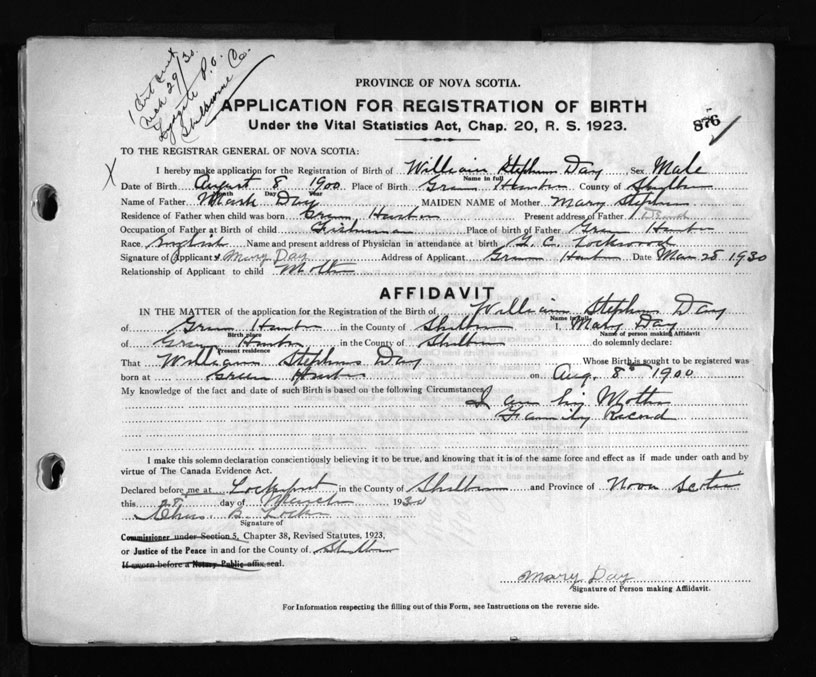 1 Cert sent
Mch 29/30.
P.O.
Shelburne Co.
PROVINCE OF NOVA SCOTIA.
APPLICATION FOR REGISTRATION OF BIRTH
876
Under the Vital Statistics Act, Chap. 20, R. S. 1923.
TO THE REGISTRAR GENERAL OF NOVA SCOTIA:
X
I hereby make application for the Registration of Birth of William Stephens Day Sex Male
Name in full
Date of Birth August 8 1900 Place of Birth Green Harbor County of Shelburne
Month Day Year
Name of Father Mark Day MAIDEN NAME of Mother Mary Stephens
Residence of Father when child was born Green Harbor Present address of Father
Occupation of Father at Birth of child Fisherman Place of birth of Father Green Harbor
Race English Name and present address of Physician in attendance at birth G. C. Lockwood
Signature of Applicant Mary Day Address of Applicant Green Harbor Date Mar 28 1930
Relationship of Applicant to child Mother
AFFIDAVIT
IN THE MATTER of the application for the Registration of the Birth of William Stephens Day
Name in full
of Green Harbor in the County of Shelburne I, Mary Day
Birth place Name of person making Affidavit
of Green Harbor in the County of Shelburne do solemnly declare:
Present residence
That William Stephens Day Whose Birth is sought to be registered was
born at Green Harbor on Aug. 8th 1900
My knowledge of the fact and date of such Birth is based on the following Circumstances
I am his Mother
Family Record
I make this solemn declaration conscientiously believing it to be true, and knowing that it is of the same force and effect as if made under oath and by
virtue of The Canada Evidence Act.
Declared before me at Lockeport in the County of Shelburne and Province of Nova Scotia
this 28 day of March 1930
Chas. B. Locke
Signature of
Commissioner under Section 5, Chapter 38, Revised Statutes, 1923,
or Justice of the Peace in and for the County of Shelburne
If sworn before a Notary Public affix seal.
Mary Day
Signature of Person making Affidavit.
For Information respecting the filling out of this Form, see Instructions on the reverse side.